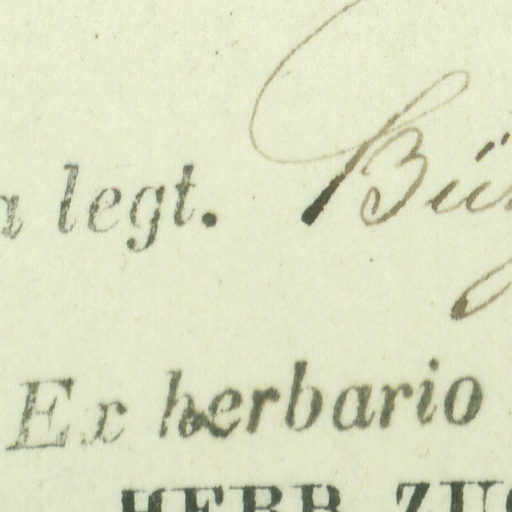 legt.
Ex herbario
HERB. ZUC